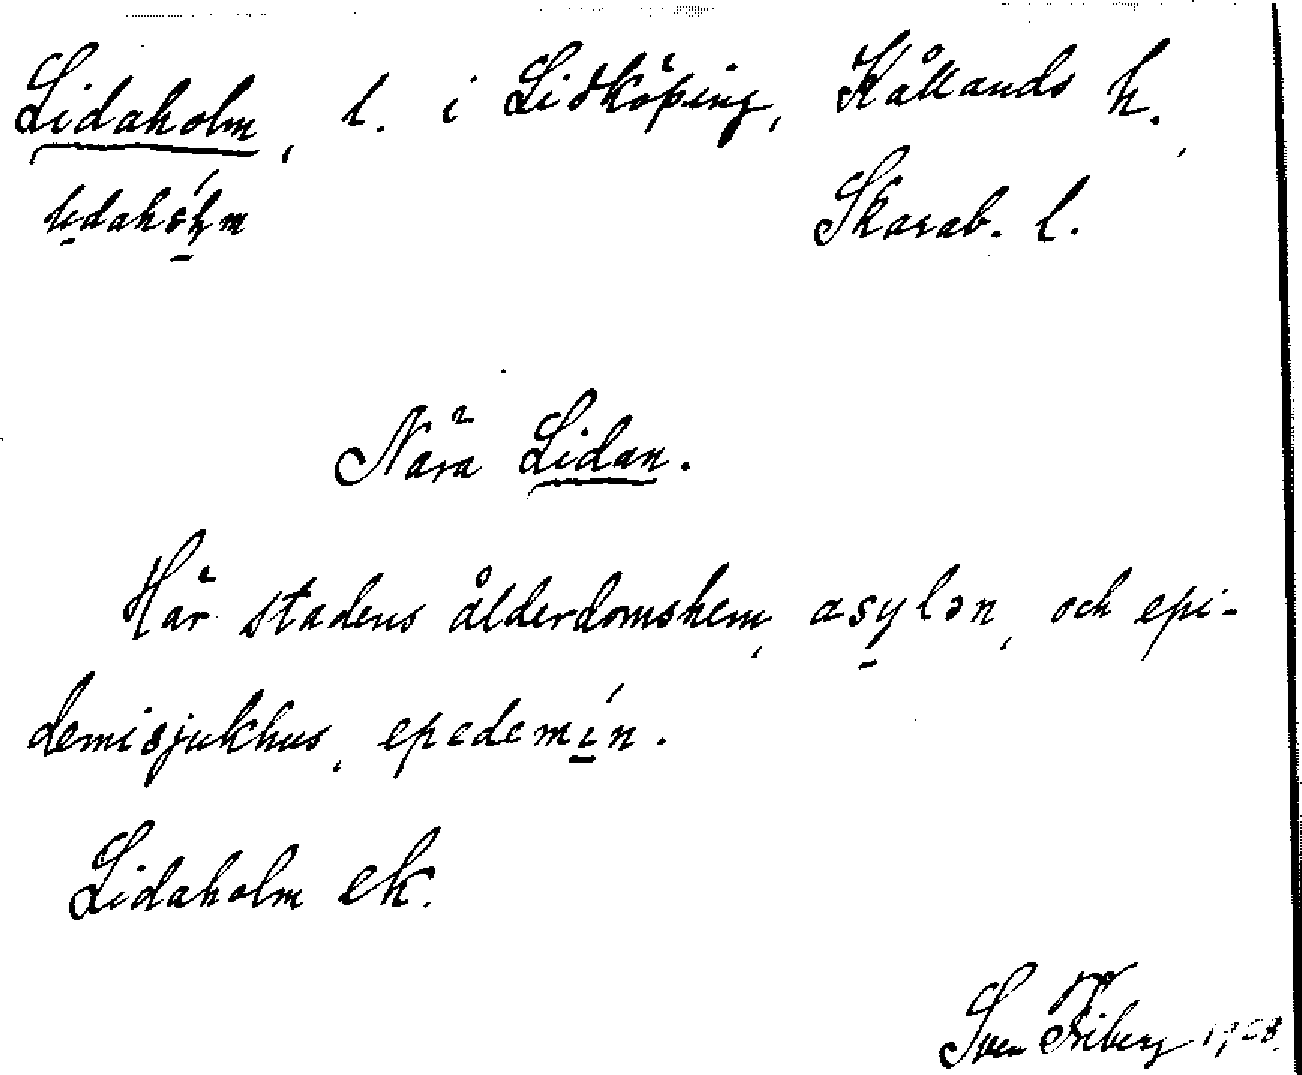 Lidaholm, l. i Lidköping, Kållands h.,
lidahólm Skarab. l.
Nära Lidan.
Här stadens ålderdomshem, asylən, och epi-
demisjukhus, epedemín.
Lidaholm ek.
Sven Friberg